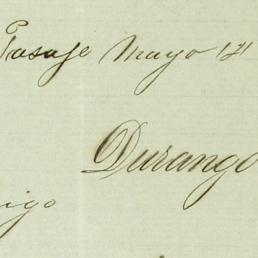 Pasaje Mayo 121
Durango
igo